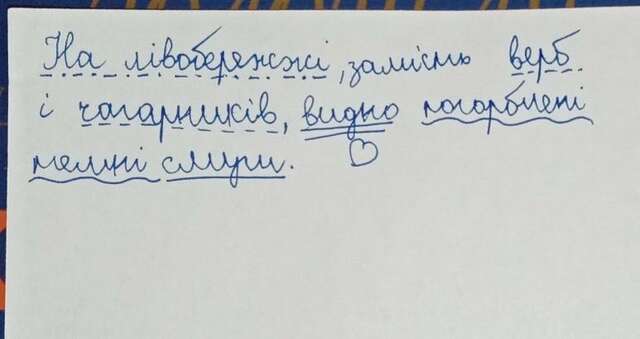 На лівобережжі, замість верб
і чагарників, видно погорблені
темні смуги.